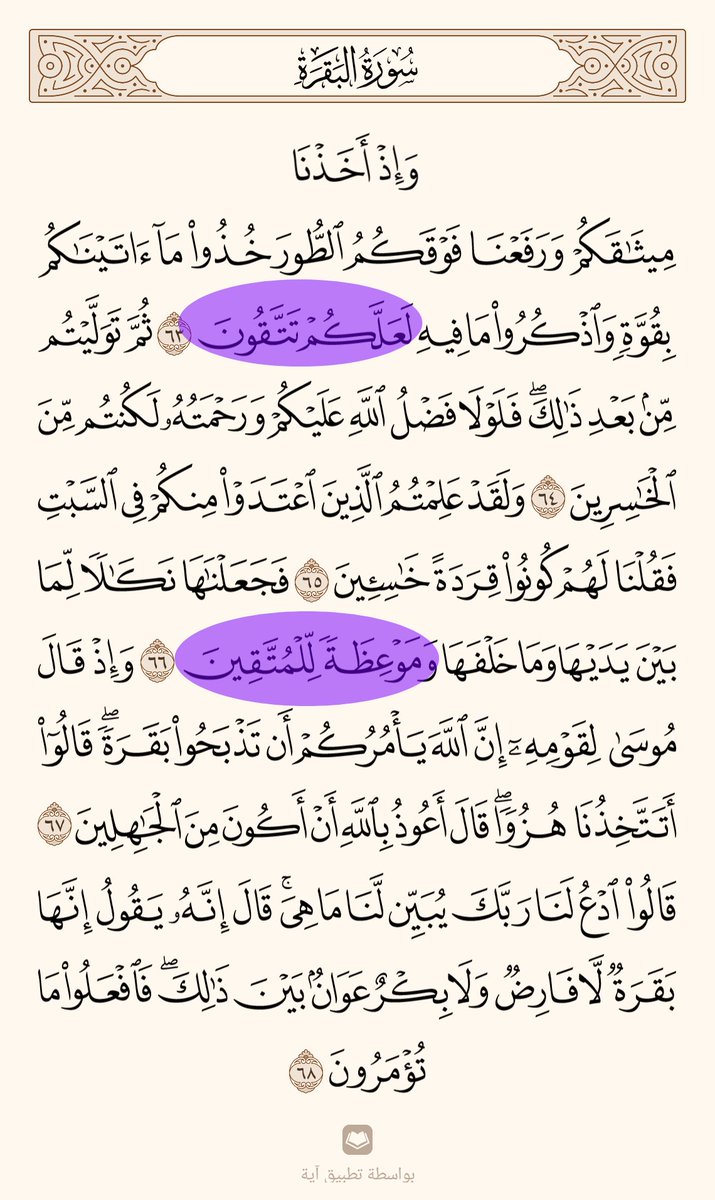 سُورَةُ البَقَرَةِ
وَإِذۡ أَخَذۡنَا
مِيثَٰقَكُمۡ وَرَفَعۡنَا فَوۡقَكُمُ ٱلطُّورَ خُذُواْ مَآ ءَاتَيۡنَٰكُم
بِقُوَّةٖ وَٱذۡكُرُواْ مَا فِيهِ لَعَلَّكُمۡ تَتَّقُونَ ٦٣ ثُمَّ تَوَلَّيۡتُم
مِّنۢ بَعۡدِ ذَٰلِكَۖ فَلَوۡلَا فَضۡلُ ٱللَّهِ عَلَيۡكُمۡ وَرَحۡمَتُهُۥ لَكُنتُم مِّنَ
ٱلۡخَٰسِرِينَ ٦٤ وَلَقَدۡ عَلِمۡتُمُ ٱلَّذِينَ ٱعۡتَدَوۡاْ مِنكُمۡ فِي ٱلسَّبۡتِ
فَقُلۡنَا لَهُمۡ كُونُواْ قِرَدَةً خَٰسِـِٔينَ ٦٥ فَجَعَلۡنَٰهَا نَكَٰلٗا لِّمَا
بَيۡنَ يَدَيۡهَا وَمَا خَلۡفَهَا وَمَوۡعِظَةٗ لِّلۡمُتَّقِينَ ٦٦ وَإِذۡ قَالَ
مُوسَىٰ لِقَوۡمِهِۦٓ إِنَّ ٱللَّهَ يَأۡمُرُكُمۡ أَن تَذۡبَحُواْ بَقَرَةٗۖ قَالُوٓاْ
أَتَتَّخِذُنَا هُزُوٗاۖ قَالَ أَعُوذُ بِٱللَّهِ أَنۡ أَكُونَ مِنَ ٱلۡجَٰهِلِينَ ٦٧
قَالُواْ ٱدۡعُ لَنَا رَبَّكَ يُبَيِّن لَّنَا مَا هِيَۚ قَالَ إِنَّهُۥ يَقُولُ إِنَّهَا
بَقَرَةٞ لَّا فَارِضٞ وَلَا بِكۡرٌ عَوَانُۢ بَيۡنَ ذَٰلِكَۖ فَٱفۡعَلُواْ مَا
تُؤۡمَرُونَ ٦٨
بواسطة تطبيق آية